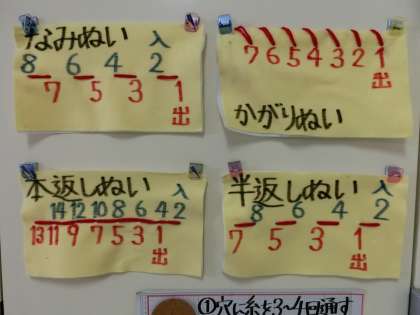 なみぬい 入
8 6 4 2
7 5 3 1
出
7 6 5 4 3 2 1
出
かがりぬい
本返しぬい 入
14 12 10 8 6 4 2
13 11 9 7 5 3 1
出
半返しぬい 入
8 6 4 2
7 5 3 1
出
①穴に糸を3~4回通す